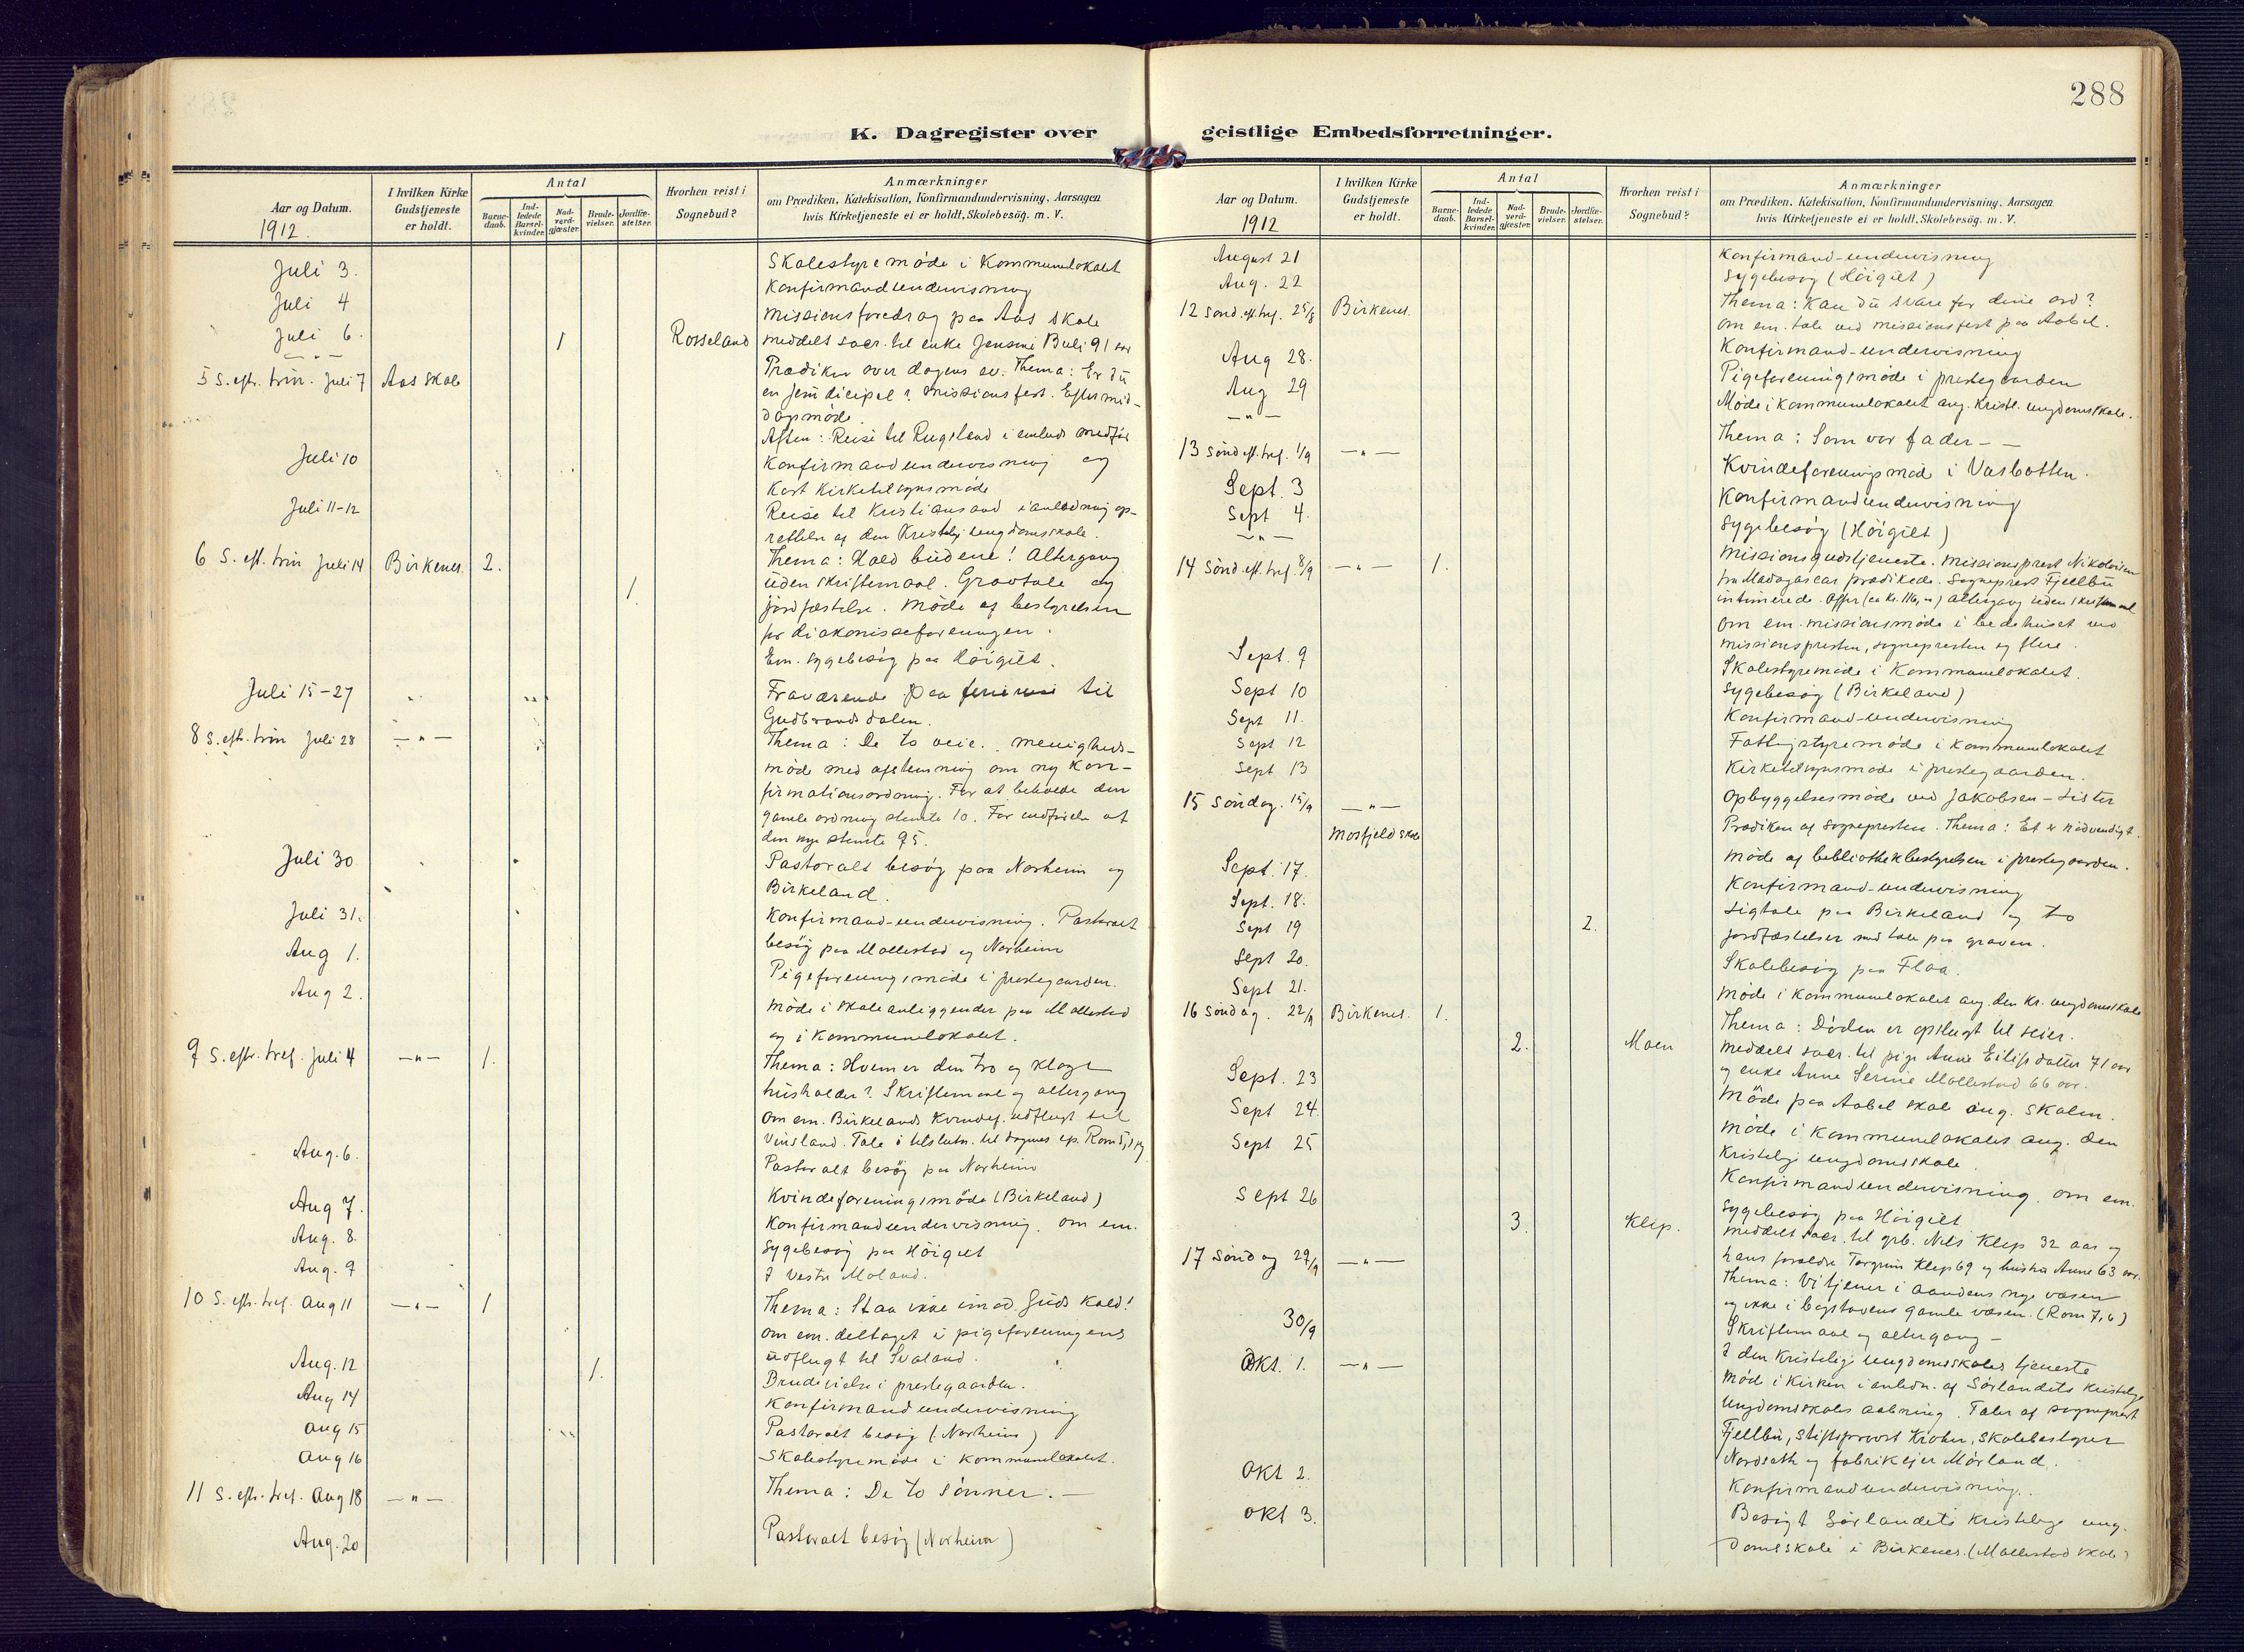 288
K. Dagregister over geistlige Embedsforretninger.
Aar og Datum.
1912.
I hvilken Kirke Gudstjeneste er holdt.
Antal
Barne-daab.
Ind-ledede Barsel-kvinder.
Nad-verd-gjæster.
Brude-vielser.
Jordfæ-stelser.
Hvorhen reist i Sognebud?
Anmærkninger
om Prædiken, Katekisation, Konfirmandundervisning, Aarsagen
hvis Kirketjeneste ei er holdt, Skolebesøg. m. V.
Juli 3. Skolestyremøde i Kommunelokalet
Juli 4 Konfirmandundervisning
Juli 6. Missionsforedrag paa Aas skole
— " — 1 Rosseland meddelt sacr. til enke Jensine Buli 91 aar
5 S. eftr. trin. Juli 7 Aas skole Prædiken over dagens ev. Thema: Er du
en Jesu dicipel? Missionsfest. Eftermid-
dagsmøde.
Aften: Reise til Rugsland i embeds medfør
Juli 10 Konfirmandundervisning og
Kort Kirketilsynsmøde
Juli 11-12 Reise til Kristiansand i anledning op-
rettelse af den Kristelig ungdomsskole.
6 S. eft. trin Juli 14 Birkenes. 2. Thema: Hold budene! Altergang
uden skriftemaal. Gravtale og
1. jordfæstelse. Møde af bestyrelsen
for diakonisseforeningen.
Em. sygebesøg paa Høigilt.
Juli 15-27 Fraværende paa ferie til
Gudbrandsdalen.
8 S. eftr. trin Juli 28 — " — Thema: De to veie. Menigheds-
møde med afstemning om ny Kon-
firmationsordning. For at beholde den
gamle ordning stemte 10. For indførelse af
den nye stemte 95.
Juli 30 Pastoralt besøg paa Norheim og
Birkeland.
Juli 31. Konfirmand-undervisning. Pastoralt
Aug 1. besøg paa Mollestad og Norheim
Pigeforeningsmøde i prestegaarden.
Aug 2. Møde i skoleanliggender paa Mollestad
og i Kommunelokalet.
9 S. eftr. tref. Juli 4 — " — 1. Thema: Hvem er den tro og kloge
husholder? Skriftemaal og altergang
Om em. Birkelands Kvindef. udflugt til
Vinsland. Tale i tilslutn. til dagens ep. Rom
Aug. 6. Pastoralt besøg paa Norheim
Aug 7. Kvindeforeningsmøde (Birkeland)
Aug. 8. Konfirmandundervisning. Om em.
Sygebesøg paa Høigilt
Aug. 9 I Vestre Moland.
10 S. eftr. tref. Aug 11 — " — 1 Thema: Staa ikke imod Guds Kald!
Om em. deltaget i pigeforeningens
udflugt til Svaland.
Aug. 12 1. Brudevielse i prestegaarden.
Aug 14 Konfirmandundervisning
Aug 15 Pastoralt besøg (Norheim)
Aug 16 Skolestyremøde i Kommunelokalet.
11 S. eftr. tref. Aug 18 — " — Thema: De to sønner. —
Aug. 20 Pastoralt besøg (Norheim)
Aar og Datum.
1912
I hvilken Kirke Gudstjeneste er holdt.
Antal
Barne-daab.
Ind-ledede Barsel-kvinder.
Nad-verd-gjæster.
Brude-vielser.
Jordfæ-stelser.
Hvorhen reist i Sognebud?
Anmærkninger
om Prædiken, Katekisation, Konfirmandundervisning, Aarsagen
hvis Kirketjeneste ei er holdt, Skolebesøg. m. V.
August 21 Konfirmand-undervisning
Aug. 22 Sygebesøg (Høigilt)
12 Sønd. eft. tref. 25/8 Birkenes. Thema: Kan du svare for dine ord?
Om em. tale ved missionsfest paa Aabel.
Aug 28. Konfirmand-undervisning
Aug 29 Pigeforeningsmøde i prestegaarden
— " — Møde i Kommunelokalet ang. Kristl. ungdomsskole.
13 Sønd eft. tref. 1/9 — " — Thema: Som vor fader — —
Sept. 3 Kvindeforeningsmøde i Vasbotten.
Sept 4. Konfirmandundervisning
— " — Sygebesøg (Høigilt)
14 Sønd. eft. tref 8/9 — " — 1. Missionsgudstjeneste. Missionsprest Nikolaisen
fra Madagascar prædikede. Sogneprest Fjellbu
intimerede. Offer (ca kr. 116,00) Altergang uden skriftemaal
Om em. missionsmøde i bedehuset ved
missionspresten, sognepresten og flere.
Sept. 9 Skolestyremøde i Kommunelokalet.
Sept 10 Sygebesøg (Birkeland)
Sept 11. Konfirmand-undervisning
Sept 12 Fattigstyremøde i Kommunelokalet
Sept 13 Kirketilsynsmøde i prestegaarden.
15 Søndag. 15/9 — " — Opbyggelsesmøde ved Jakobsen-Lister
Mosfjeld skole Prædiken af sognepresten. Thema: Et er nødvendigt.
Sept. 17. Møde af bibliothekbestyrelsen i prestegaarden.
Sept. 18. Konfirmand-undervisning
Sept 19 2. Ligtale paa Birkeland og to
jordfæstelser med tale paa graven.
Sept 20. Skolebesøg paa Flaa.
Sept 21. Møde i Kommunelokalet ang. den Kr. ungdomsskole
16 Søndag. 22/9 Birkenes. 1. Thema: Døden er opslugt til seier.
2. Moen Meddelt sacr. til pige Anne Eilifsdatter 71 aar
og enke Anne Serine Mollestad 66 aar.
Sept. 23 Møde paa Aabel skole ang. skolen.
Sept 24. Møde i Kommunelokalet ang. den
Kristelige ungdomsskole.
Sept 25 Konfirmandundervisning. Om em.
Sygebesøg paa Høigilt
Sept 26 3. Klep. Meddelt sacr. til grb. Nils Klep 32 aar og
hans forældre Torgrim Klep 69 og hustru Anne 63 aar.
17 Søndag 29/9 — " — Thema: Vi tjener i aandens nye væsen
og ikke i bogstavens gamle væsen. (Rom 7,6)
Skriftemaal og altergang —
30/9 I den Kristelige ungdomsskoles tjeneste
Okt. 1. — " — Møde i Kirken i anledn. af Sørlandets Kristelige
Ungdomsskoles aabning. Taler af sogneprest
Fjellbu, Stiftsprovst Krohn, Skolebestyrer
Nordseth og fabrikejer Mørland.
Okt 2. Konfirmandundervisning.
Okt 3. Besøgt Sørlandets Kristelige ung-
domsskole i Birkenes. (Mollestad skole)